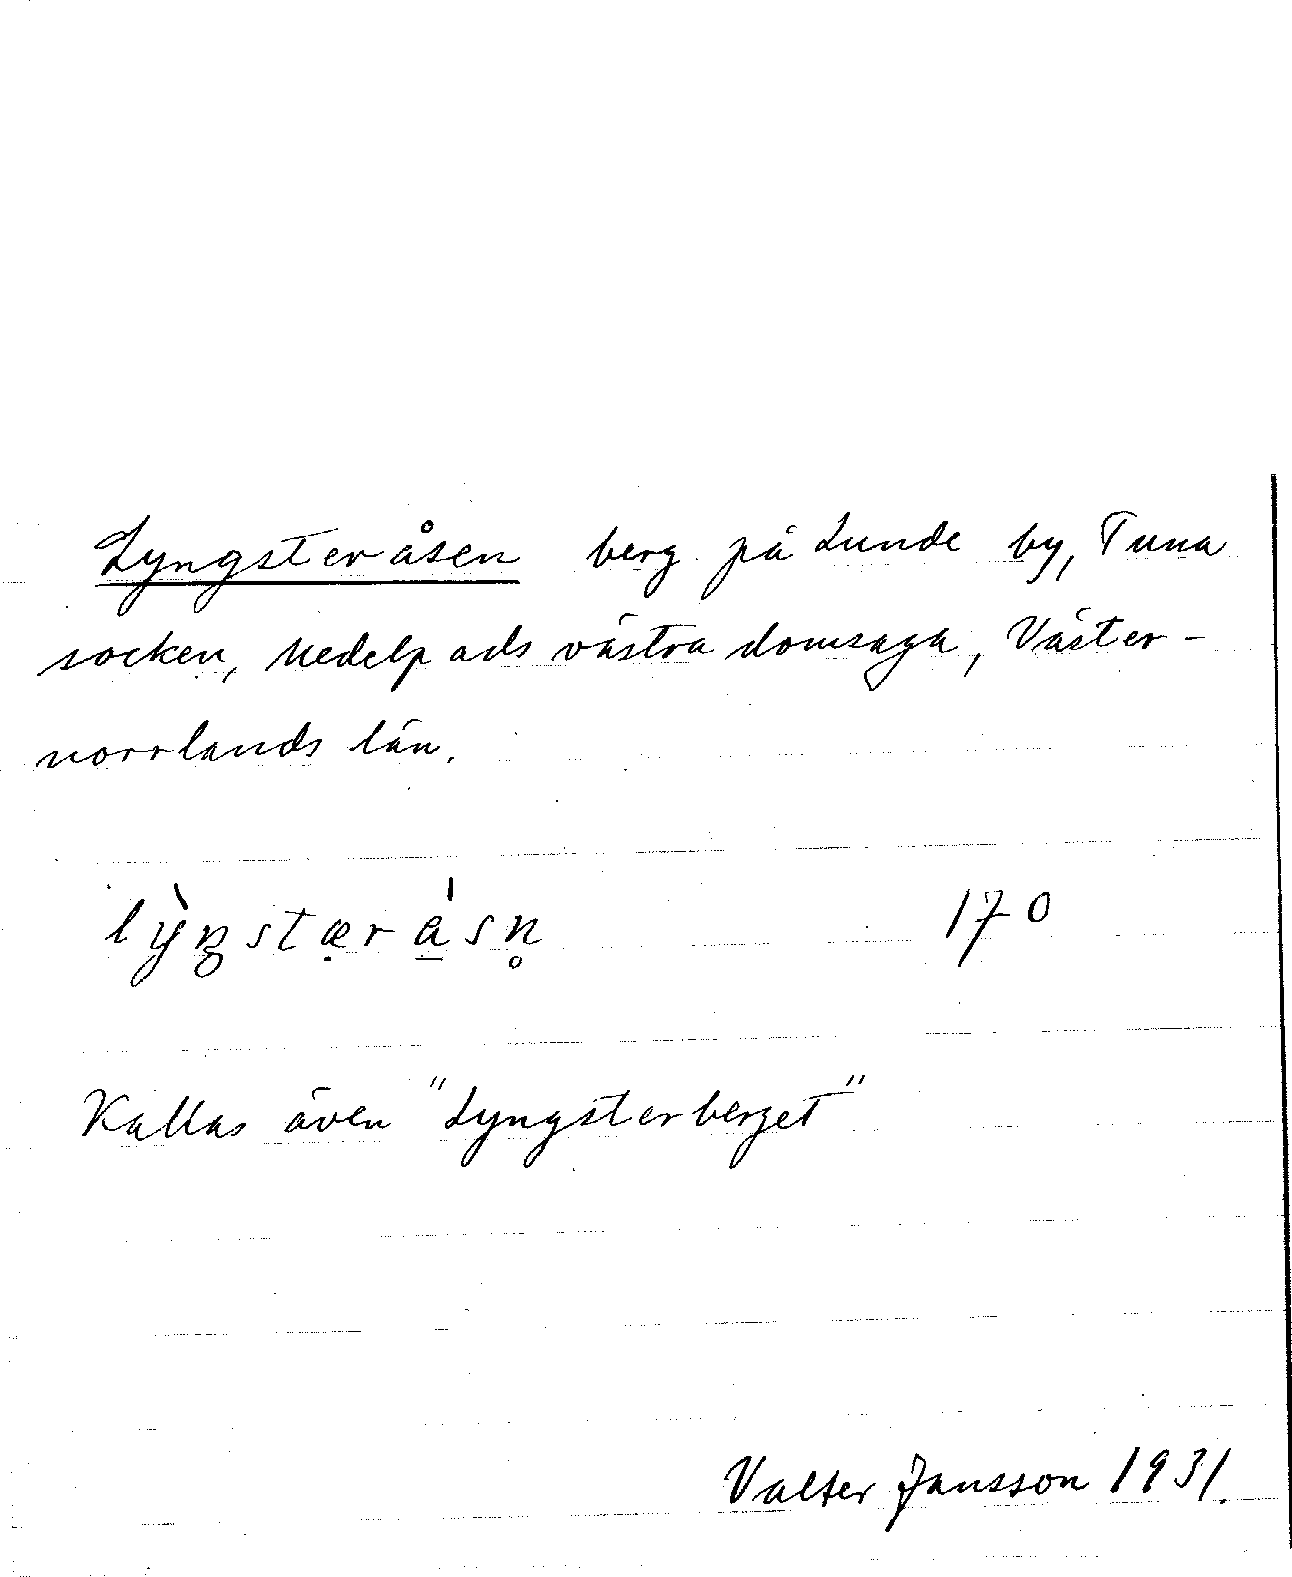 Lyngsteråsen berg på Lunde by, Tuna
socken, Medelpads västra domsaga, Väster-
norrlands län.
lỳŋstæ̣ra̲̍sn̥ 170
Kallas även "Lyngsterberget"
Valter Jansson 1931.